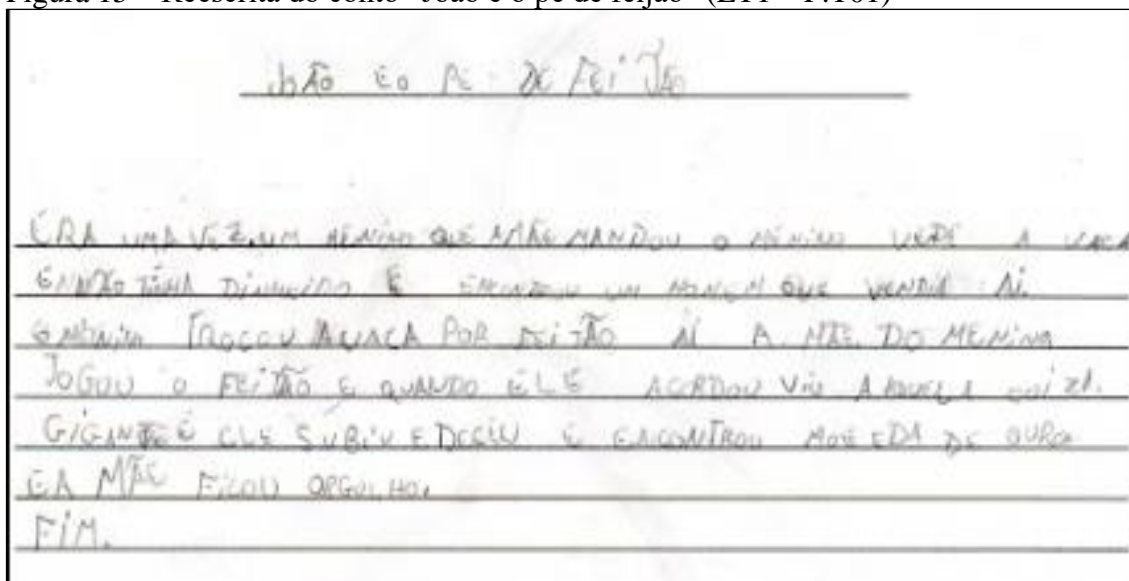 Figura 13 – Reescrita do conto "João e o pé de feijão" (ET1 – P.161)
JOÃO E O PE DE FEIJÃO
ERA UMA VEZ, UM MENINO QUE MÃE MANDOU O MENINO VEDE A VACA
E NÃO TINHA DINHEIRO E ENCONTROU UM HOMEM QUE VENDIA AÍ.
O MENINO TROCOU A VACA POR FEIJÃO AÍ A MÃE DO MENINO
JOGOU O FEIJÃO E QUANDO ELE ACORDOU VIU AQUELA COIZA.
GIGANTE E ELE SUBIU E DECEU E ENCONTROU MOEDA DE OURO
E A MÃE FICOU ORGULHO.
FIM.